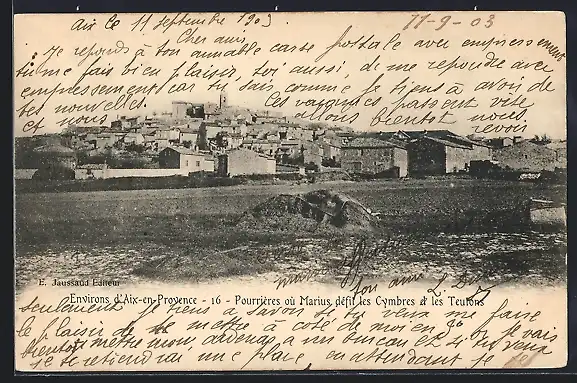 Aix le 11 septembre 1903
11-9-03
Cher ami
Je reponds à ton aimable carte postale avec empressement
tu me fais bien plaisir, toi aussi, de me repondre avec
empressement car tu sais comme je tiens à avoir de
tes nouvelles. Ces vacances passent vite
et nous bientôt nous
revoir
E. Jaussaud Editeur
ton ami
Environs d'Aix-en-Provence - 16 - Pourrières où Marius défit les Cymbres & les Teutons
Seulement je tiens à savoir si tu veux me faire
le plaisir de te mettre à côté de moi en Je vais
bientôt mettre mon bureau et si tu veux
je te retiendrai une place en attendant je
te